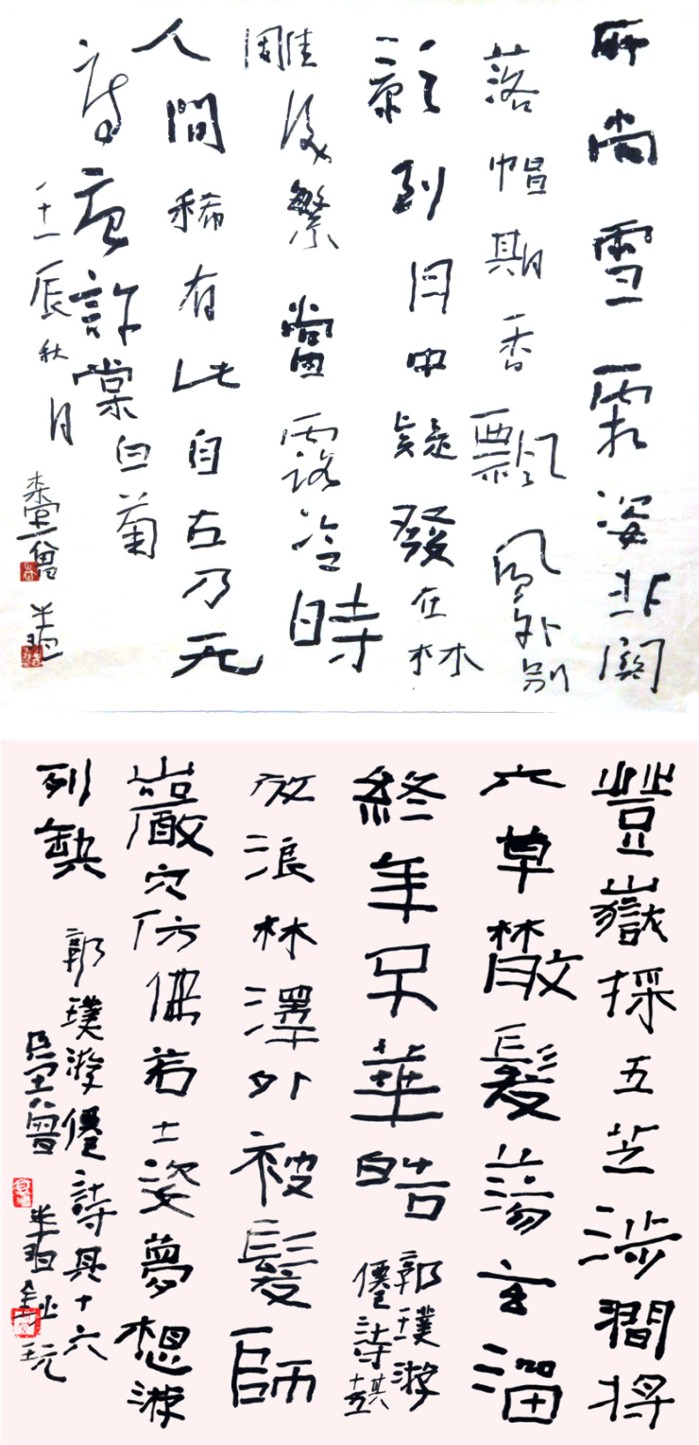 所尚雪霜姿非關
落帽期香飄風外別
影到月中疑發在林
雕後繁當露冷時
人間稀有此自古乃无
詩唐許棠白菊
壬辰秋月
豐嶽採五芝涉澗將
六草散髮蕩玄溜
終年不華皓
郭璞游
僊詩其十五
放浪林澤外被髮師
巖穴仿佛若士姿夢想游
列缺
郭璞游僊詩其十六